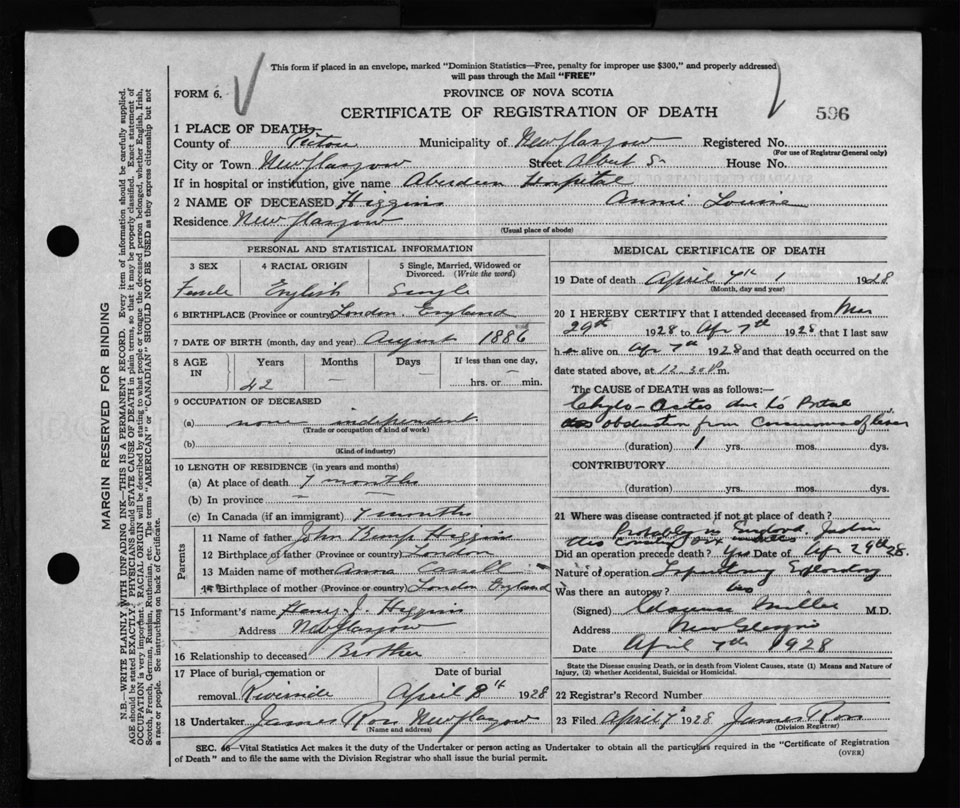 This form if placed in an envelope, marked "Dominion Statistics—Free, penalty for improper use $300," and properly addressed
will pass through the Mail "FREE"
FORM 6.
PROVINCE OF NOVA SCOTIA
CERTIFICATE OF REGISTRATION OF DEATH
596
1 PLACE OF DEATH—
County of Pictou Municipality of New Glasgow Registered No.
(For use of Registrar General only)
City or Town New Glasgow Street Albert St House No.
If in hospital or institution, give name Aberdeen Hospital
2 NAME OF DECEASED Higgins Annie Louise
Residence New Glasgow
(Usual place of abode)
PERSONAL AND STATISTICAL INFORMATION
3 SEX 4 RACIAL ORIGIN 5 Single, Married, Widowed or Divorced. (Write the word)
Female English Single
6 BIRTHPLACE (Province or country) London England
7 DATE OF BIRTH (month, day and year) August 1886
8 AGE IN Years Months Days If less than one day,
42 — — hrs. or — min.
9 OCCUPATION OF DECEASED
(a) none independent
(Trade or occupation of kind of work)
(b)
(Kind of industry)
10 LENGTH OF RESIDENCE (in years and months)
(a) At place of death 7 months
(b) In province — —
(c) In Canada (if an immigrant) 7 months
Parents
11 Name of father John Kemp Higgins
12 Birthplace of father (Province or country) London
13 Maiden name of mother Anna
14 Birthplace of mother (Province or country) London England
15 Informant's name Henry J. Higgins
Address New Glasgow
16 Relationship to deceased Brother
17 Place of burial, cremation or removal Riverside
Date of burial April 8th 1928
18 Undertaker James Ross New Glasgow
(Name and address)
MEDICAL CERTIFICATE OF DEATH
19 Date of death April 7th 1928
(Month, day and year)
20 I HEREBY CERTIFY that I attended deceased from Mar
29th 1928 to Apr 7th 1928 that I last saw
her alive on Apr 7th 1928 and that death occurred on the
date stated above, at 12.30 P.m.
The CAUSE OF DEATH was as follows:—
due to Portal
obstruction from of liver
(duration) 1 yrs. mos. dys.
CONTRIBUTORY
(duration) yrs. mos. dys.
21 Where was disease contracted if not at place of death?
Probably in
Did an operation precede death? Yes Date of Apr 29th 28.
Nature of operation Laparotomy Exploratory
Was there an autopsy? No
(Signed) Clarence Miller M.D.
Address New Glasgow
Date April 7th 1928
State the Disease causing Death, or in death from Violent Causes, state (1) Means and Nature of
Injury, (2) whether Accidental, Suicidal or Homicidal.
22 Registrar's Record Number
23 Filed April 7th 1928 James Ross
(Division Registrar)
SEC. 66—Vital Statistics Act makes it the duty of the Undertaker or person acting as Undertaker to obtain all the particulars required in the "Certificate of Registration
of Death" and to file the same with the Division Registrar who shall issue the burial permit.
(OVER)
MARGIN RESERVED FOR BINDING
N.B.—WRITE PLAINLY, WITH UNFADING INK—THIS IS A PERMANENT RECORD. Every item of information should be carefully supplied.
AGE should be stated EXACTLY. PHYSICIANS should STATE CAUSE OF DEATH in plain terms, so that it may be properly classified. Exact statement of
OCCUPATION is very important. RACIAL ORIGIN will be described by stating to what people or tongue the deceased person belonged, whether English, Irish,
Scotch, French, German, Russian, Ruthenian, etc. The terms "AMERICAN" or "CANADIAN" SHOULD NOT BE USED as they express citizenship but not
a race or people. See instructions on back of Certificate.